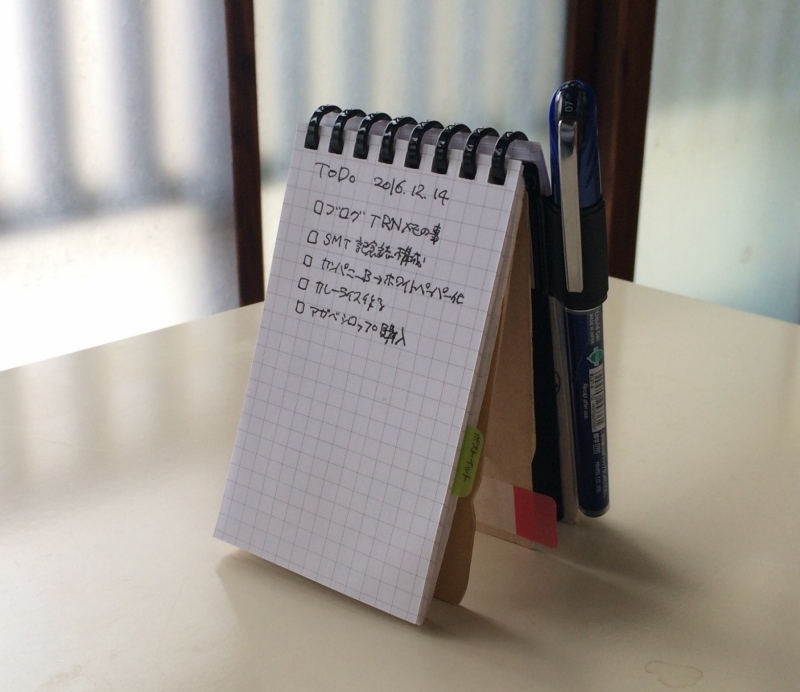 ToDo 2016.12.14
□ブログ TRNメモの事
□SMT 記念誌構成
□カンパニーB→ホワイトペーパー化
□カレーライス作る
□アガベシロップ購入
07